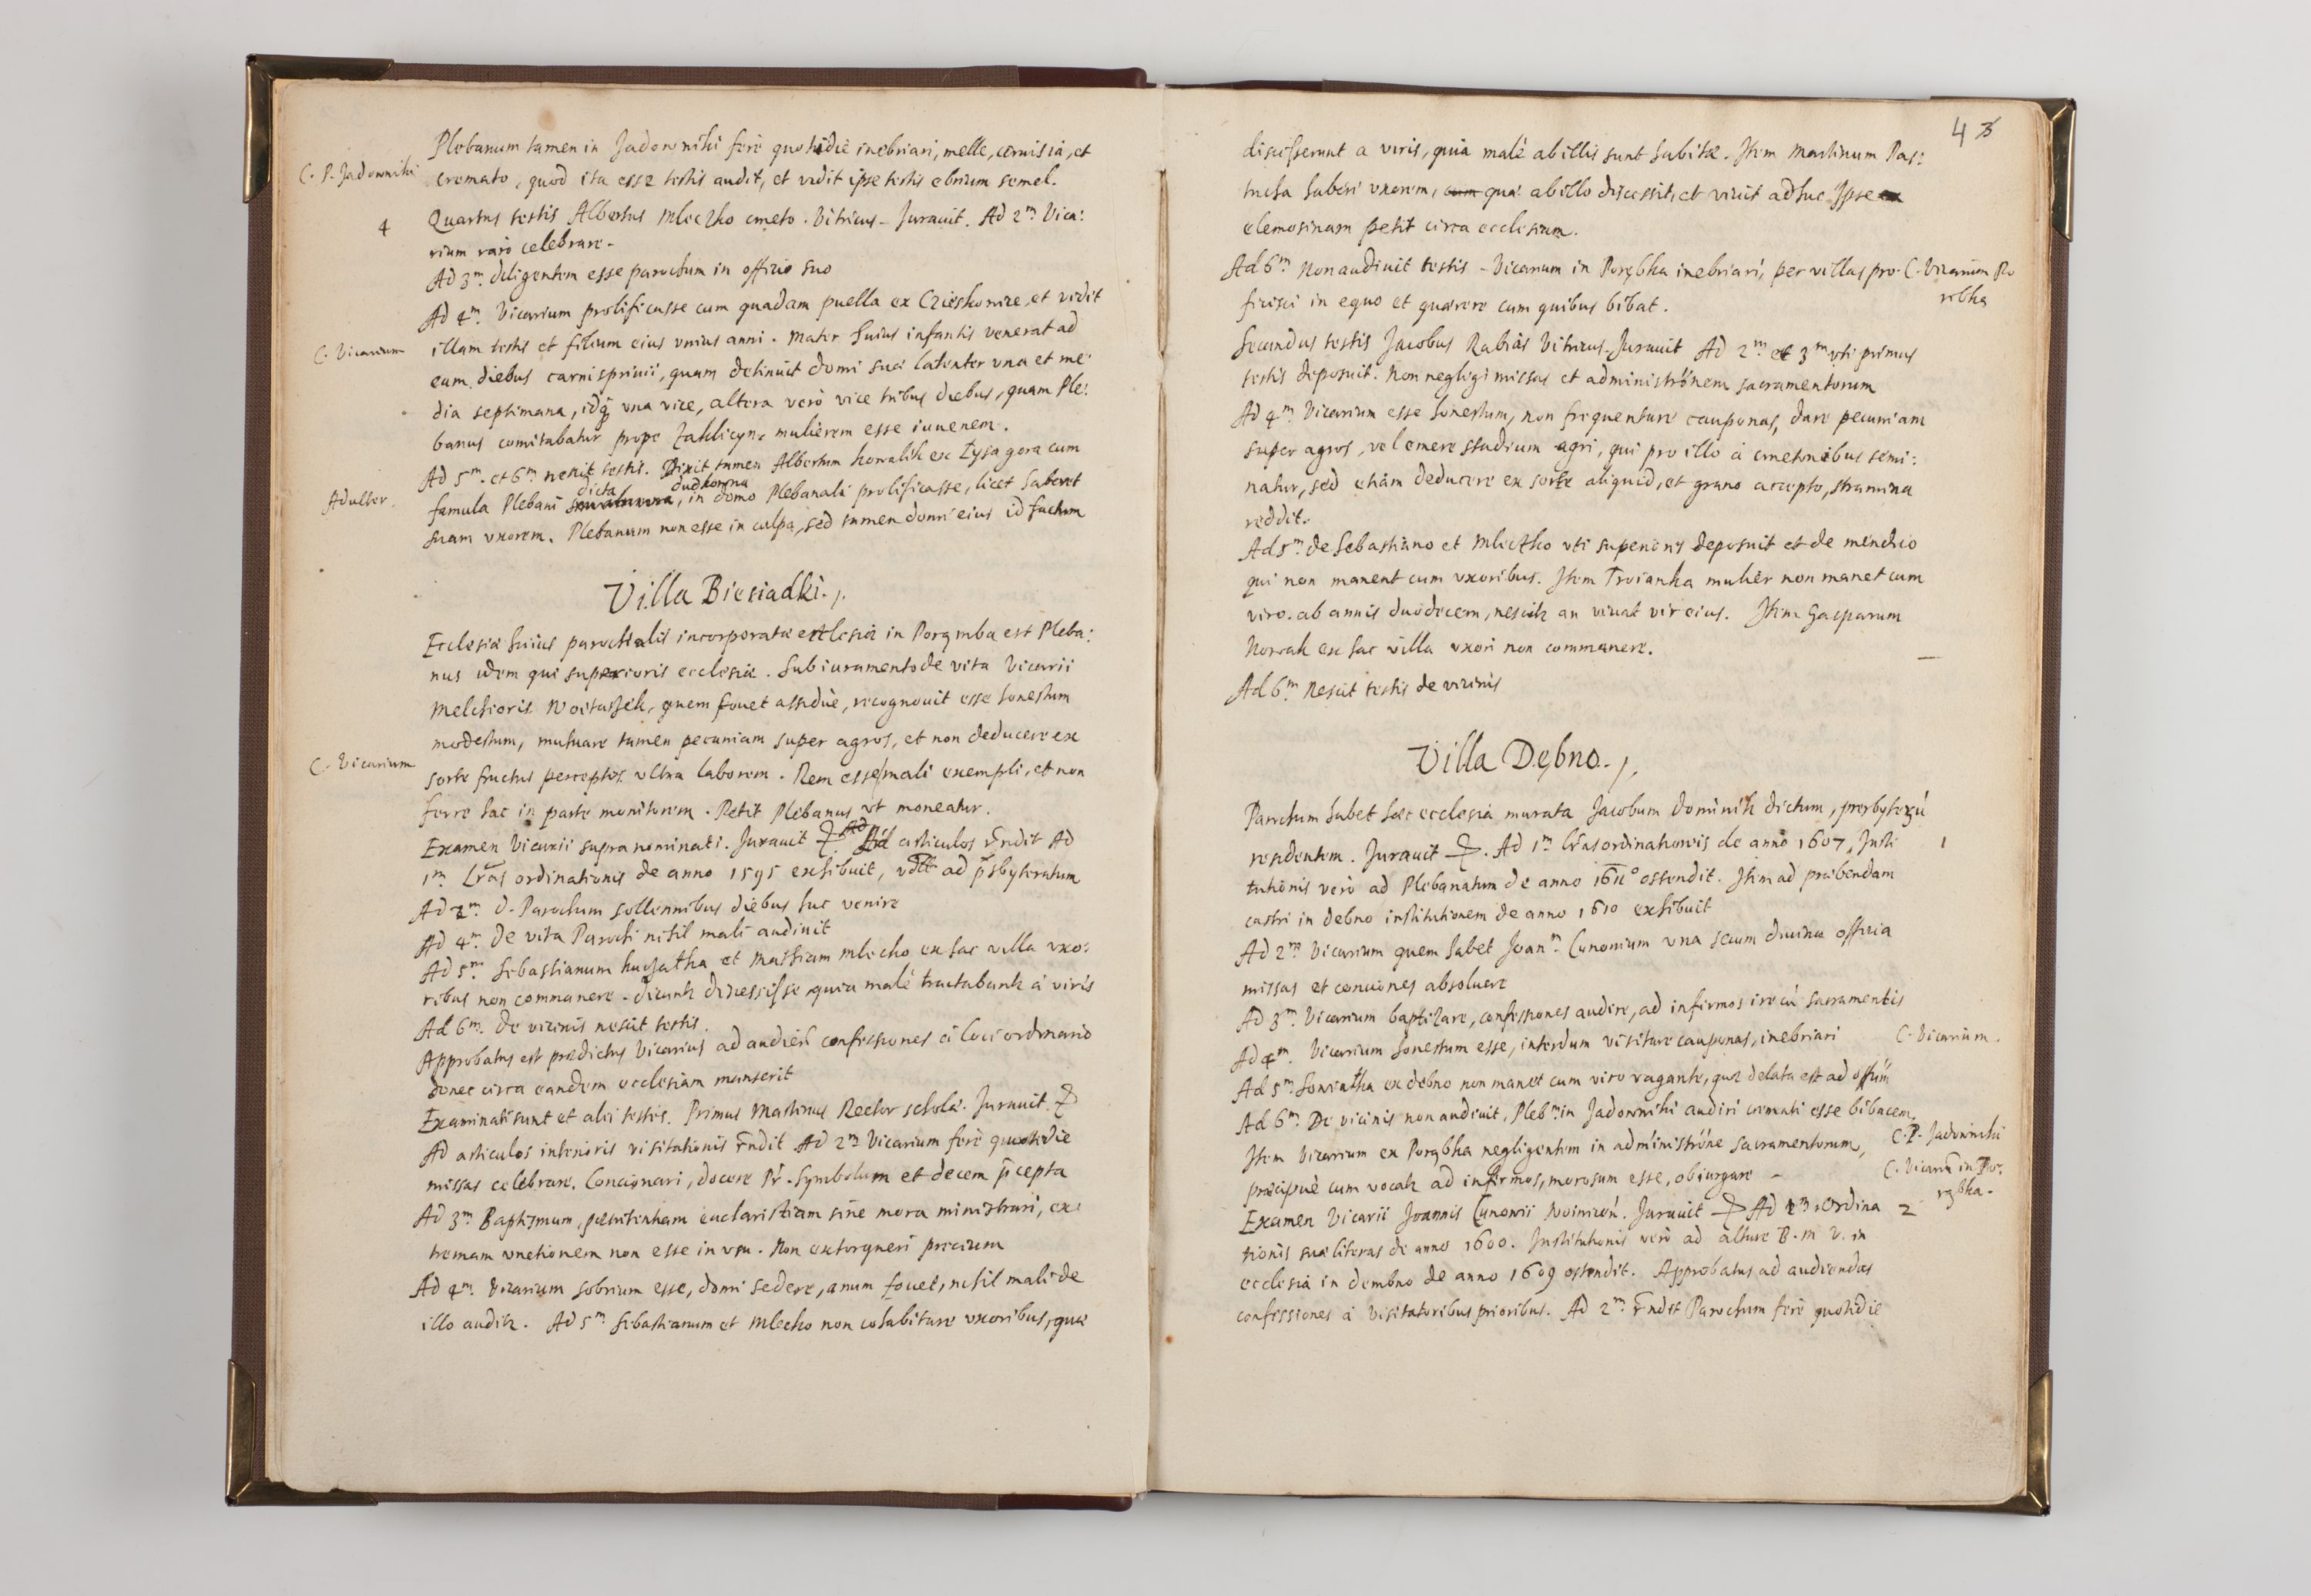 C. P. Jadowniki
Plebanum tamen in Jadowniki fere quotidie inebriari, melle, ceruisia, et
cremato, quod ita esse testis audit, et vidit ipse testis ebrium semel.
4
Quartus testis Albertus Mleczko cmeto. Vitricus. Jurauit. Ad 2m. Vica:
rium raro celebrare.
Ad 3m. diligentem esse parochum in officio suo
Ad 4m. Vicarium prolificasse cum quadam puella ex Czieskowice, et vidit
C. Vicarium
illam testis et filium eius vnius anni. Mater huius infantis venerat ad
eum diebus carnispriuii, quam detinuit domi suae latenter vna et me:
dia septimana, idq vna vice, altera vero vice tribus diebus, quam Ple:
banus comitabatur prope Zakliczyn. mulierem esse iuuenem.
Ad 5m. et 6m nescit testis. Dixit tamen Albertum kowalik ex Łysa gora cum
Adulter.
dicta dudkowna
famula Plebani, in domo Plebanali prolificasse, licet haberet
suam vxorem. Plebanum non esse in culpa, sed tamen domi eius id factum
Villa Biesiadki.
Ecclesiae huius parochialis incorporatae ecclesiae in Porąmba est Pleba:
nus idem qui superioris ecclesiae. Sub iuramento de vita Vicarii
Melchioris Woitassek, quem fouet assidue, recognouit esse honestum
modestum, mutuare tamen pecuniam super agros, et non deducere ex
C. Vicarium
sorte fructus perceptos vltra laborem. Rem esse mali exempli, et non
ferre hac in parte monitorem. Petit Plebanus vt moneatur.
Examen Vicarii supra nominati. Jurauit. Ad articulos rndit Ad
1m. Lras ordinationis de anno 1595 exhibuit, vdlt ad psbyteratum
Ad 2m. d. Parochum sollennibus diebus huc venire
Ad 4m. de vita Parochi nihil mali audiuit
Ad 5m. Sebastianum kuchatka et Mathiam mlecko ex hac villa vxo:
ribus non commanere. dicunt discessisse quia male tractabant a viris
Ad 6m. de vicinis nescit testis.
Approbatus est praedictus Vicarius ad audien confessiones a loci ordinario
donec circa eandem ecclesiam manserit
Examinati sunt et alii testes. Primus Martinus Rector scholae. Jurauit.
Ad articulos interioris visitationis rndit Ad 2m Vicarium fere quotidie
missas celebrare. Concionari, docere Pr. Symbolum et decem pcepta
Ad 3m Baptismum, poenitentiam eucharistiam sine mora ministrari, ex:
tremam vnctionem non esse in vsu. Non extorqueri precium
Ad 4m. Vicarium sobrium esse, domi sedere, anum fouet, nihil mali de
illo audit. Ad 5m Sebastianum et Mlecko non cohabitare vxoribus, quae
43
discesserunt a viris, quia male ab illis sunt habitae. Item Martinum Pas:
tucha haberi vxorem, cum qua ab illo discessit, et viuit adhuc. Ipse
elemosinam petit circa ecclesiam.
Ad 6m Non audiuit testis. Vicarium in Porębka inebriari, per villas pro:
C. Vicarium Po
rebka
ficisci in equo et quaerere cum quibus bibat.
Secundus testis Jacobus Rabias Vitricus. Jurauit Ad 2m et 3m vti primus
testis deposuit. Non negligi missas et administrōnem sacramentorum
Ad 4m Vicarium esse honestum, non frequentare cauponas, dare pecuniam
super agros, vel emere stadium agri, qui pro illo a cmetonibus semi:
natur, sed etiam deducere ex sorte aliquid, et grano accepto, stramina
reddit.
Ad 5m de Sebastiano et Mleczko vti superius deposuit et de mendico
qui non manent cum vxoribus. Item Troianka mulier non manet cum
viro. ab annis duodecem, nescit an viuat vir eius. Item Gasparum
Nowak ex hac villa vxori non commanere.
Ad 6m Nescit testis de vicinis
Villa Dębno.
Parochum habet haec ecclesia murata Jacobum Dominik dictum, presbyterū
1
residentem. Jurauit. Ad 1m Lras ordinationis de anno 1607, Insti
tutionis vero ad Plebanatum de anno ostendit. Item ad praebendam
castri in debno institutionem de anno 1610 exhibuit
Ad 2m Vicarium quem habet Joanm. Cunonium vna secum diuina officia
missas et conciones absoluere
Ad 3m. Vicarium baptizare, confessiones audire, ad infirmos ire cū sacramentis
Ad 4m. Vicarium honestum esse, interdum visitare cauponas, inebriari
C. Vicarium.
Ad 5m. ex debno non manet cum viro vagante, quae delata est ad offim
Ad 6m. De vicinis non audiuit, Plebm in Jadowniki audiri cremati esse bibacem.
C. P. Jadowniki
Item Vicarium ex Porąbka negligentem in administrōne sacramentorum,
C. Vicariū in Po:
rąbka.
praecipue cum vocat ad infirmos, morosum esse, obiurgare
Examen Vicarii Joannis Cunonii Woinicen. Jurauit Ad 1m Ordina
2
tionis suae literas de anno 1600. Institutionis vero ad altare B. M V. in
ecclesia in dembno de anno 1609 ostendit. Approbatus ad audiendas
confessiones a Visitatoribus prioribus. Ad 2m. rndit Parochum fere quotidie